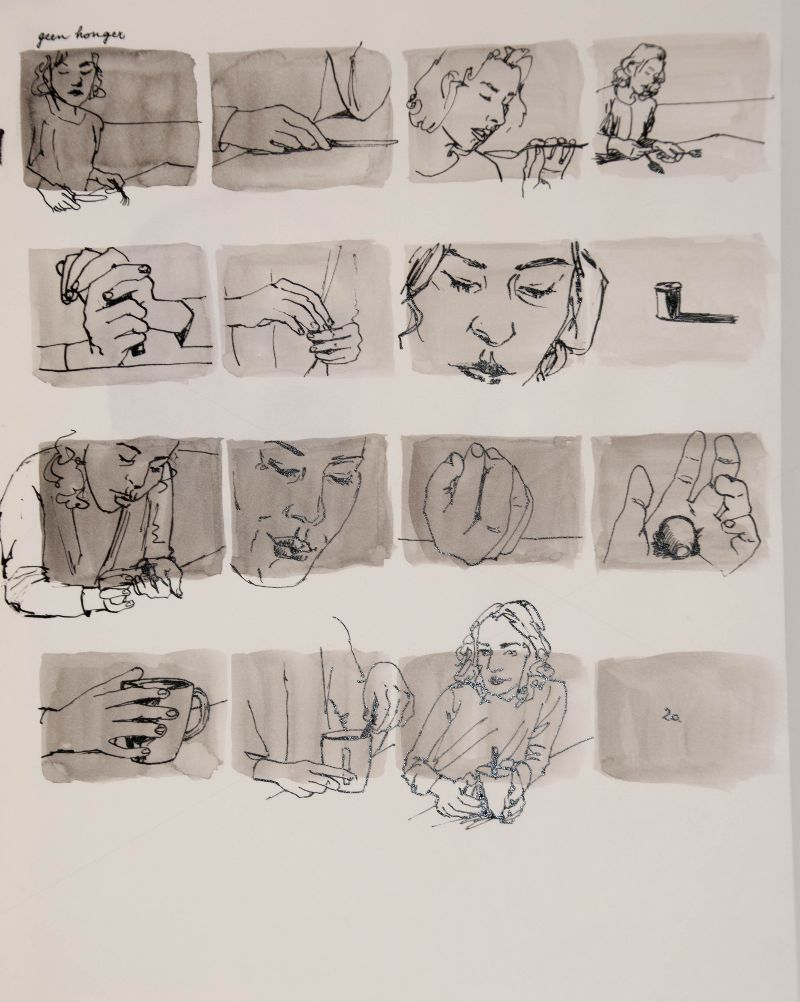 geen honger
zo